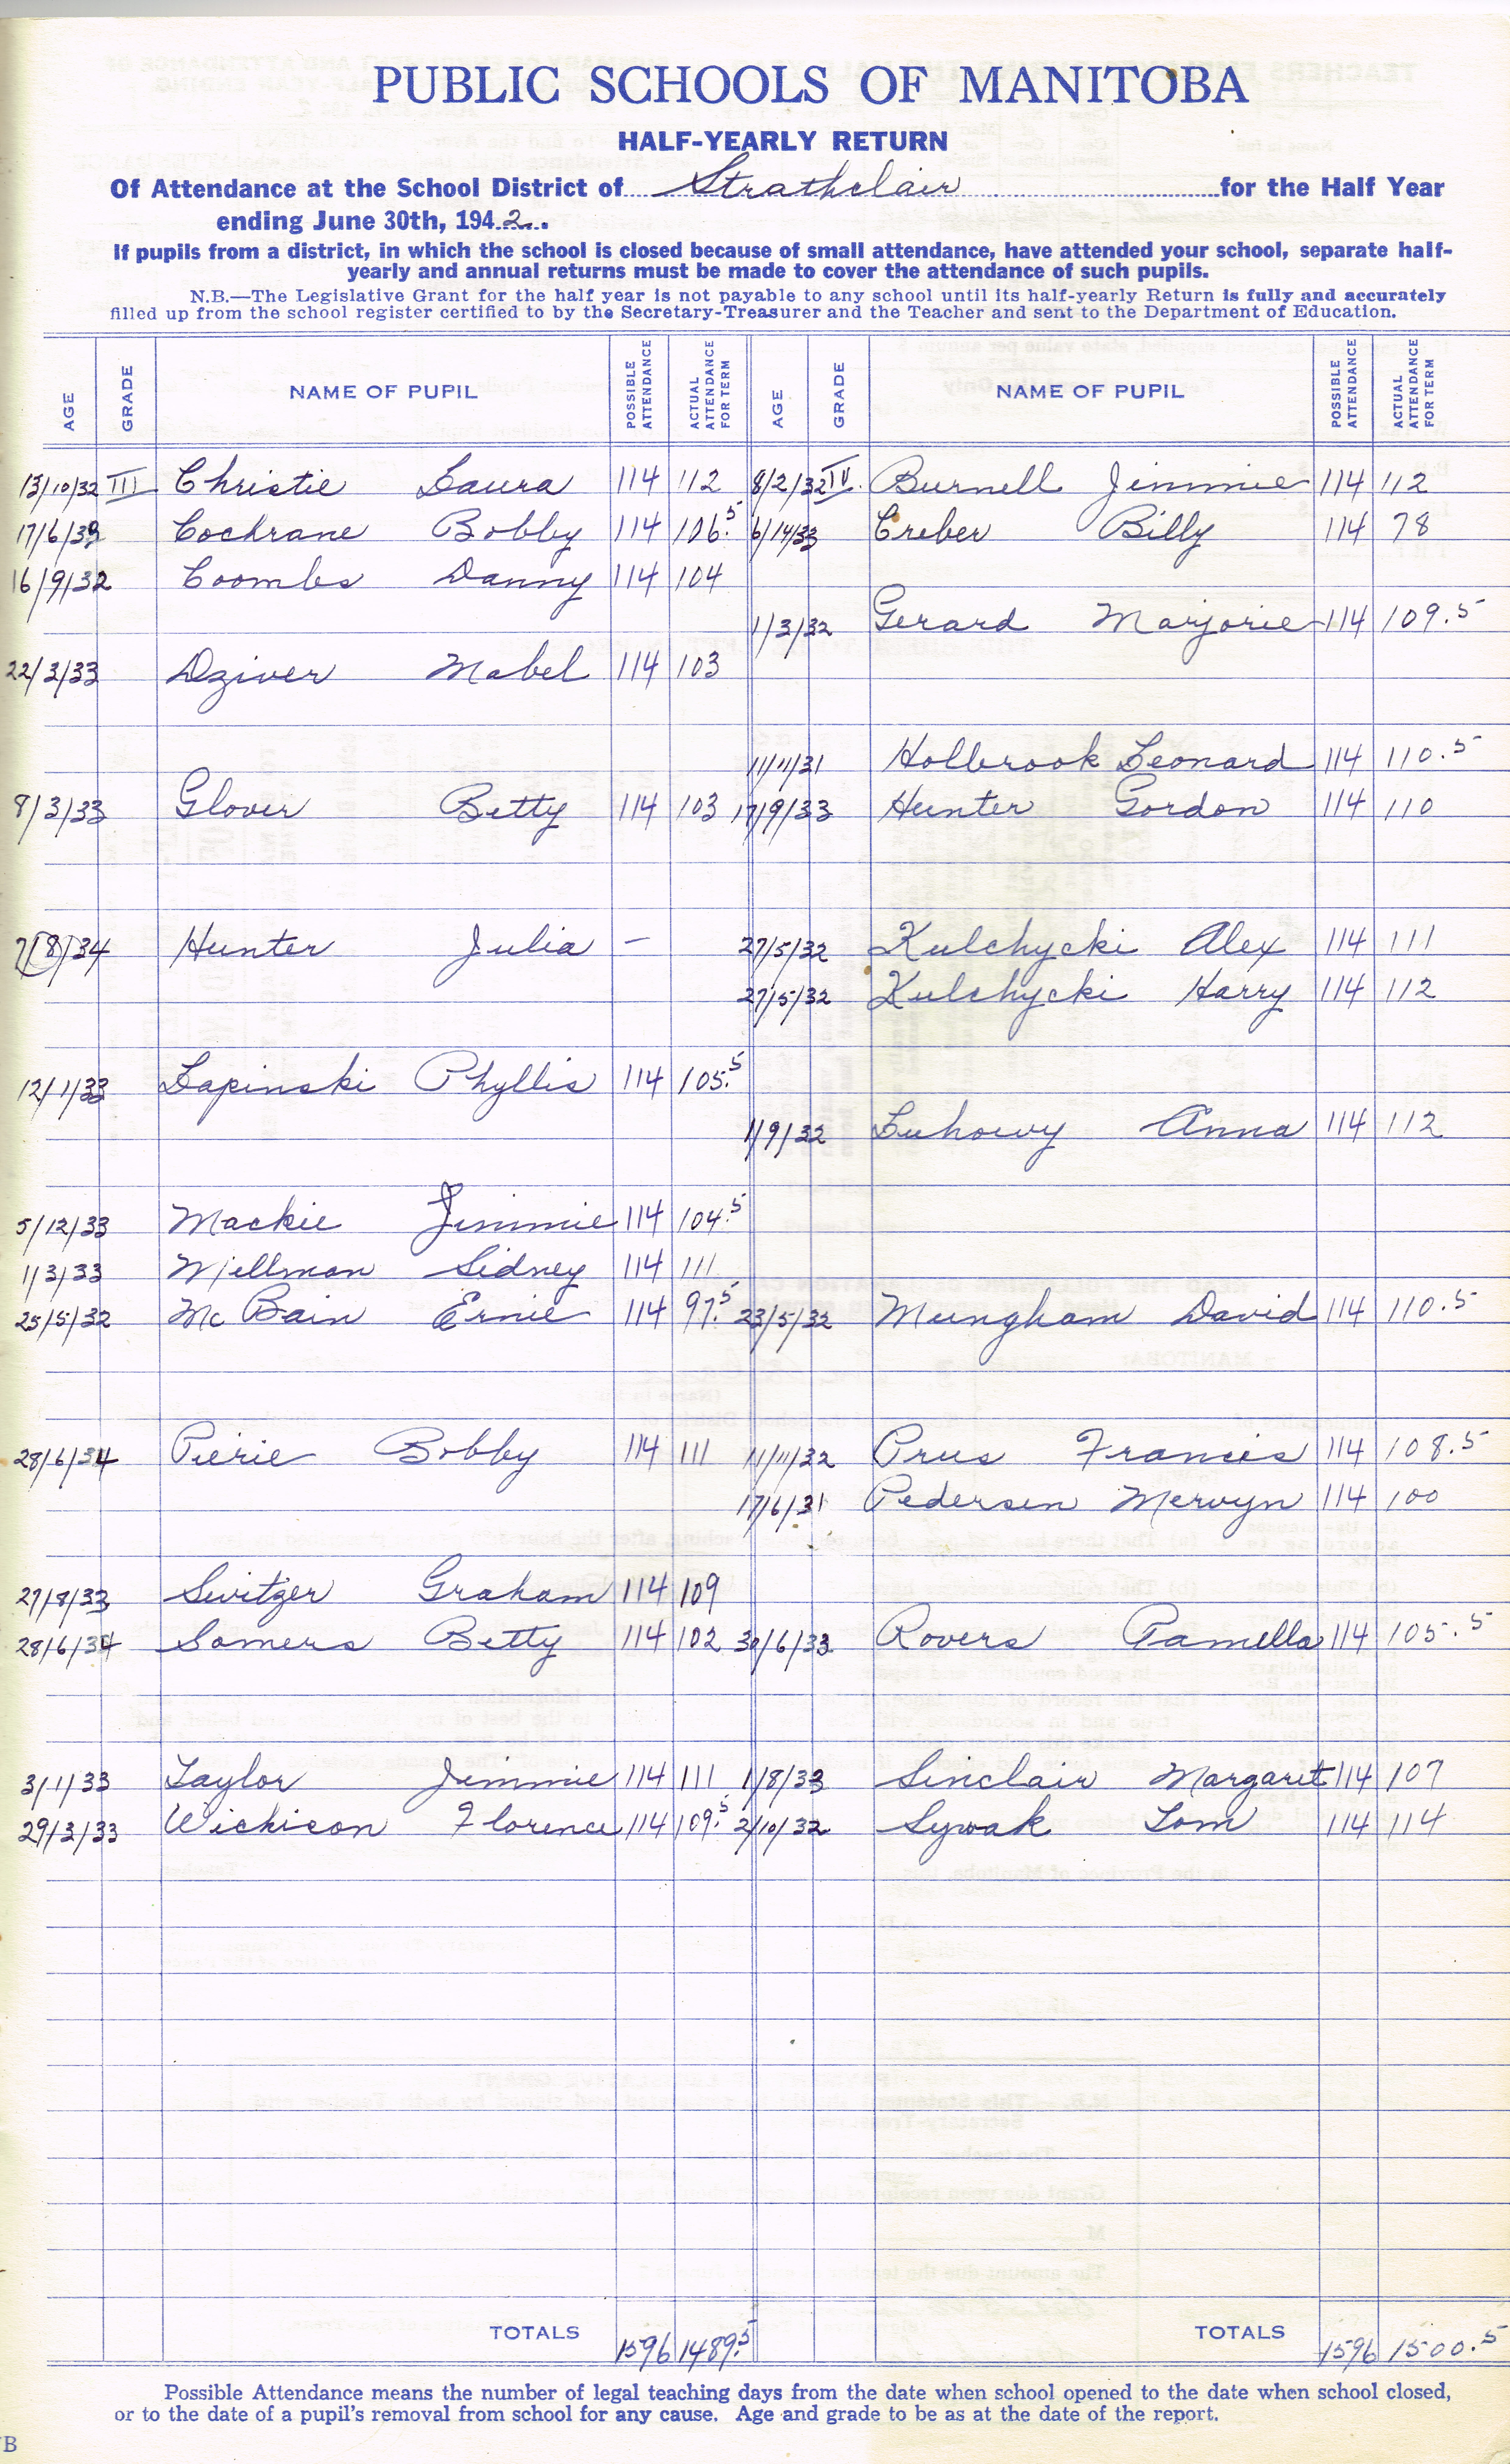 PUBLIC SCHOOLS OF MANITOBA
HALF-YEARLY RETURN
Of Attendance at the School District of Strathclair for the Half Year
ending June 30th, 1942.
If pupils from a district, in which the school is closed because of small attendance, have attended your school, separate half-
yearly and annual returns must be made to cover the attendance of such pupils.
N.B.—The Legislative Grant for the half year is not payable to any school until its half-yearly Return is fully and accurately
filled up from the school register certified to by the Secretary-Treasurer and the Teacher and sent to the Department of Education.
AGE GRADE NAME OF PUPIL POSSIBLE ATTENDANCE ACTUAL ATTENDANCE FOR TERM AGE GRADE NAME OF PUPIL POSSIBLE ATTENDANCE ACTUAL ATTENDANCE FOR TERM
13/10/32 III Christie Laura 114 112 8/2/32 IV. Burnell Jimmie 114 112
17/6/39 Cochrane Bobby 114 106.5 6/14/33 Creber Billy 114 78
16/9/32 Coombs Danny 114 104
1/3/32 Gerard Marjorie 114 109.5
22/3/33 Dziver Mabel 114 103
11/11/31 Holbrook Leonard 114 110.5
8/3/33 Glover Betty 114 103 17/9/33 Hunter Gordon 114 110
7/8/34 Hunter Julia – 27/5/32 Kulchycki Alex 114 111
27/5/32 Kulchycki Harry 114 112
12/1/33 Lapinski Phyllis 114 105.5
1/9/32 Luhowy Anna 114 112
5/12/33 Mackie Jimmie 114 104.5
1/3/33 Millman Sidney 114 111
25/5/32 McBain Ernie 114 97.5 23/5/32 Mungham David 114 110.5
28/6/34 Pierie Bobby 114 111 11/11/32 Prus Francis 114 108.5
17/6/31 Pedersen Mervyn 114 100
27/8/33 Switzer Graham 114 109
28/6/34 Somers Betty 114 102 30/6/33 Rovers Pamella 114 105.5
3/1/33 Taylor Jimmie 114 111 1/8/33 Sinclair Margaret 114 107
29/3/33 Wickison Florence 114 109.5 2/10/32 Sywak Tom 114 114
TOTALS 1596 1489.5 TOTALS 1596 1500.5
Possible Attendance means the number of legal teaching days from the date when school opened to the date when school closed,
or to the date of a pupil's removal from school for any cause. Age and grade to be as at the date of the report.